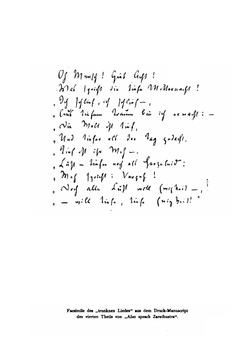 Oh Mensch! Gieb Acht!
Was spricht die tiefe Mitternacht?
„Ich schlief, ich schlief —,
„Aus tiefem Traum bin ich erwacht: —
„Die Welt ist tief,
„Und tiefer als der Tag gedacht.
„Tief ist ihr Weh —,
„Lust — tiefer noch als Herzeleid:
„Weh spricht: Vergeh!
„Doch alle Lust will Ewigkeit —,
„— will tiefe, tiefe Ewigkeit!"
Facsimile des „trunknen Liedes" aus dem Druck-Manuscript
des vierten Theils von „Also sprach Zarathustra".